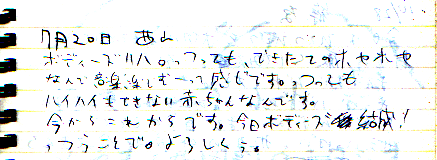 7月20日 西山
ボディーズリハ。っつっても、できたてのホヤホヤ
なんで音楽楽しむーって感じです。っつっても
ハイハイもできない赤ちゃんなんです。
今からこれからです。今日ボディーズ結成!
っつうことで。よろしくぅ。